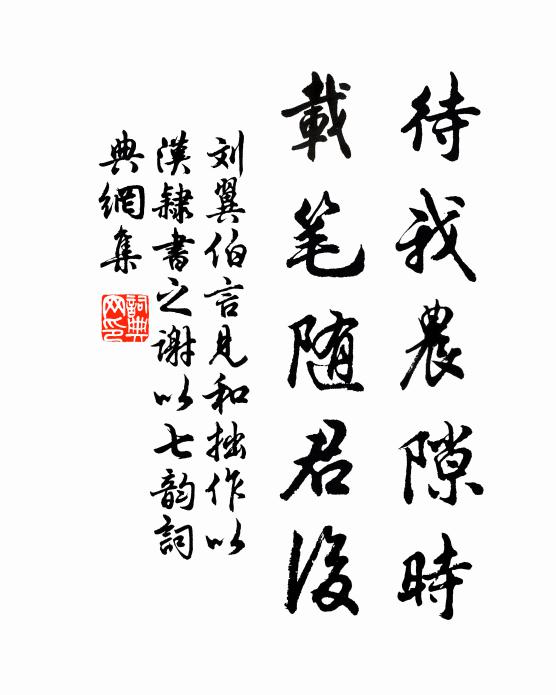 待我農隙時
載笔随君後
刘翼伯言見和拙作以
漢隸書之謝以七韵詞
典網集
詞典网印